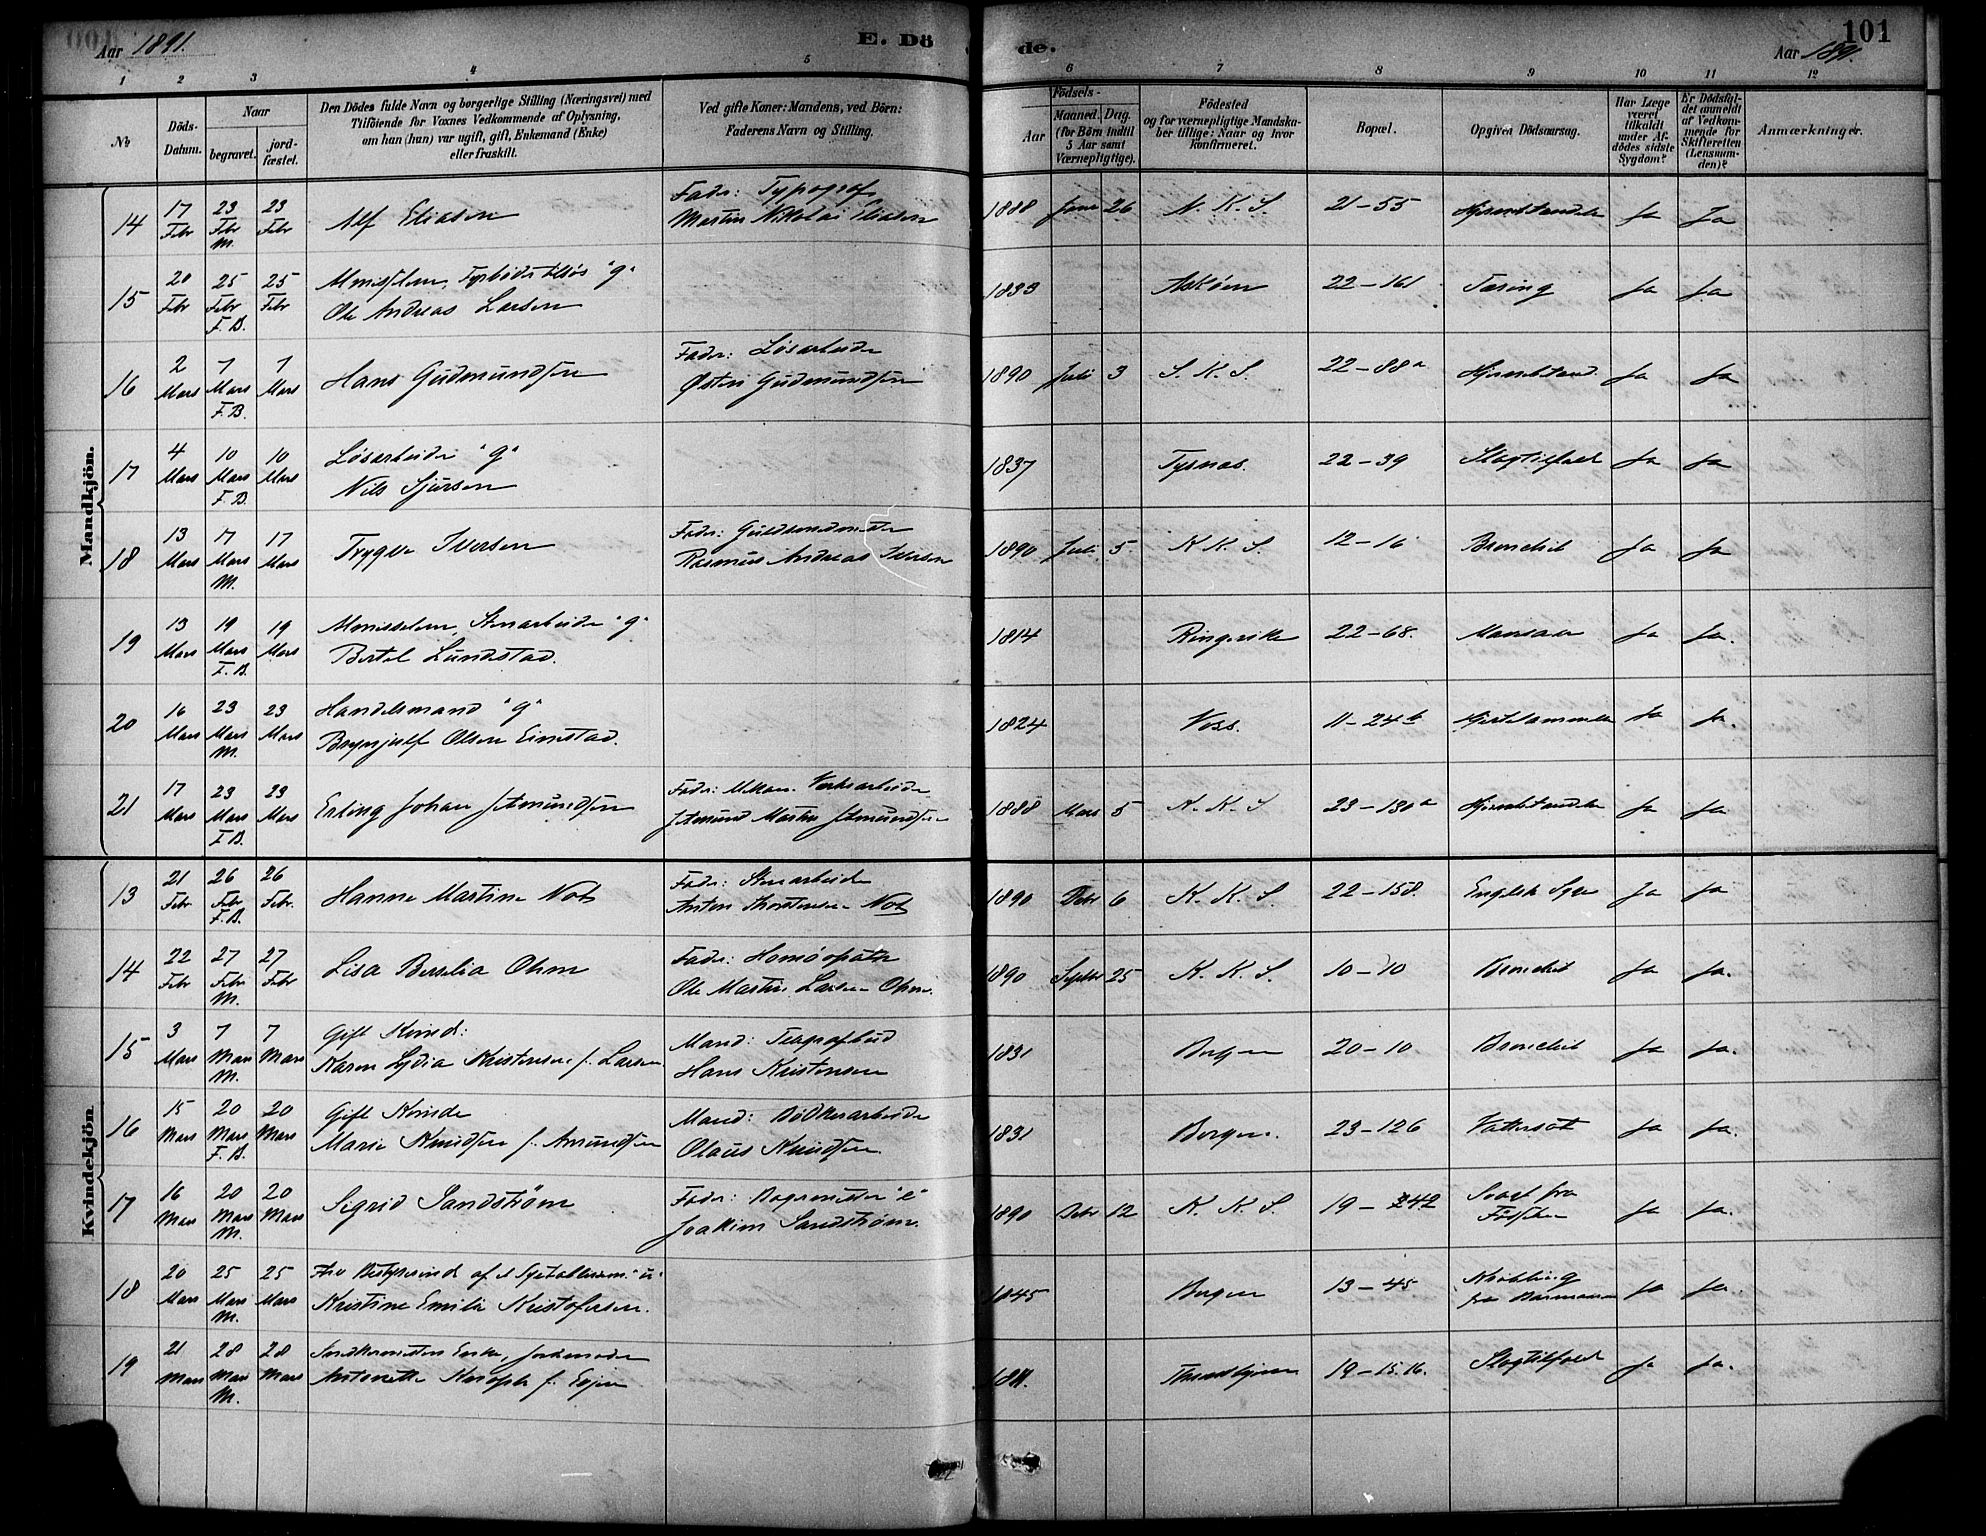 Aar 1891.
E. Dö
de.
101
Aar 1891.
1 2 3 4 5 6 7 8 9 10 11 12
No
Döds-Datum.
Naar
begravet.
jord-fæstet.
Den Dödes fulde Navn og borgerlige Stilling (Næringsvei) med
Tilföiende for Voxnes Vedkommende af Oplysning,
om han (hun) var ugift, gift, Enkemand (Enke)
eller fraskilt.
Ved gifte Koner: Mandens, ved Börn:
Faderens Navn og Stilling.
Födsels-
Aar
Maaned. Dag.
(for Börn indtil
5 Aar samt
Værnepligtige).
Födested
og for værnepligtige Mandska-
ber tillige: Naar og hvor
konfirmeret.
Bopæl.
Opgiven Dödsaarsag.
Har Læge
været
tilkaldt
under Af-
dödes sidste
Sygdom?
Er Dödsfal-
det anmeldt
af Vedkom-
mende for
Skifteretten
(Lensman-
den)?
Anmærkninger.
Mandkjön.
14 17 Febr 23 Febr M. 23 Febr Alf Eliasen Fader: Typograf Martin Nikolai Eliasen 1888 26 N. K. S. 21-55 Ja Ja
15 20 Febr 25 Febr F. B. 25 Febr "g" Ole Andreas Larsen 1833 Askøen 22-161 Tæring Ja Ja
16 2 Mars 7 Mars F. B. 7 Mars Hans Gudmundsen Fader: Løsarbeider Østen Gudmundsen 1890 Juli 3 S. K. S. 22-88a Ja Ja
17 4 Mars 10 Mars F. B. 10 Mars Løsarbeider "g" Nils Sjursen 1837 Tysnæs. 22-39 Slagtilfæld Ja Ja
18 13 Mars 17 Mars M. 17 Mars Trygve Iversen Fader: Guldsmedmester Rasmus Andreas Iversen 1890 Juli 5 K. K. S. 12-16 Bronchit Ja Ja
19 13 Mars 19 Mars F. B. 19 Mars Almisselem, Stenarbeider "g" Bertel Lundestad. 1814 Ringerike 22-68. Ja Ja.
20 16 Mars 23 Mars M. 23 Mars Handelsmand "g" Brynjulf Olsen Eimstad. 1824 Voss. 11-24b Ja Ja.
21 17 Mars 23 Mars F. B. 23 Mars Erling Johan Amundsen Fader: Mekan. Verksarbeider Amund Martin Amundsen 1888 Mars 5 N. K. S 23-130a Ja Ja
Kvindekjön.
13 21 Febr 26 Febr F. B. 26 Febr. Hanna Martine Fader: Stenarbeider Anton 1890 Debr 6 K. K. S. 22-158. Engelsk Syge Ja Ja
14 22 Febr 27 Febr M. 27 Febr Lisa Ohm Fader: Homöopath Ole Martin Larsen Ohm. 1890 Septbr 25 K. K. S. 10-10 Bronchit Ja Ja.
15 3 Mars 7 Mars M. 7 Mars Gift Kvind: Karen Lydia Kristensen f. Larsen Mand: Hans Kristensen 1831 Bergen 20-10 Bronchit Ja Ja.
16 15 Mars 20 Mars F. B. 20 Mars Gift Kvinde Marie Knudsen f. Amundsen Mand: Bødkerarbeider Olaus Knudsen. 1831 Bergen. 23-126 Vattersot Ja Ja.
17 16 Mars 20 Mars M. 20 Mars Sigrid Sandstrøm Fader: Bagermester "e" Joakim Sandstrøm. 1890 Debr 12 K. K. S. 19-242 Svag fra Fødselen Ja Ja.
18 20 Mars 25 Mars M. 25 Mars "u" Kristine Emilie Kristofersen. 1845 Bergen 13-45 Ja Ja.
19 21 Mars 28 Mars M. 28 Mars Snedkermester Enke, Antonette f. 1811. Throndhjem 19-15.16. Slagtilfæld Ja Ja.